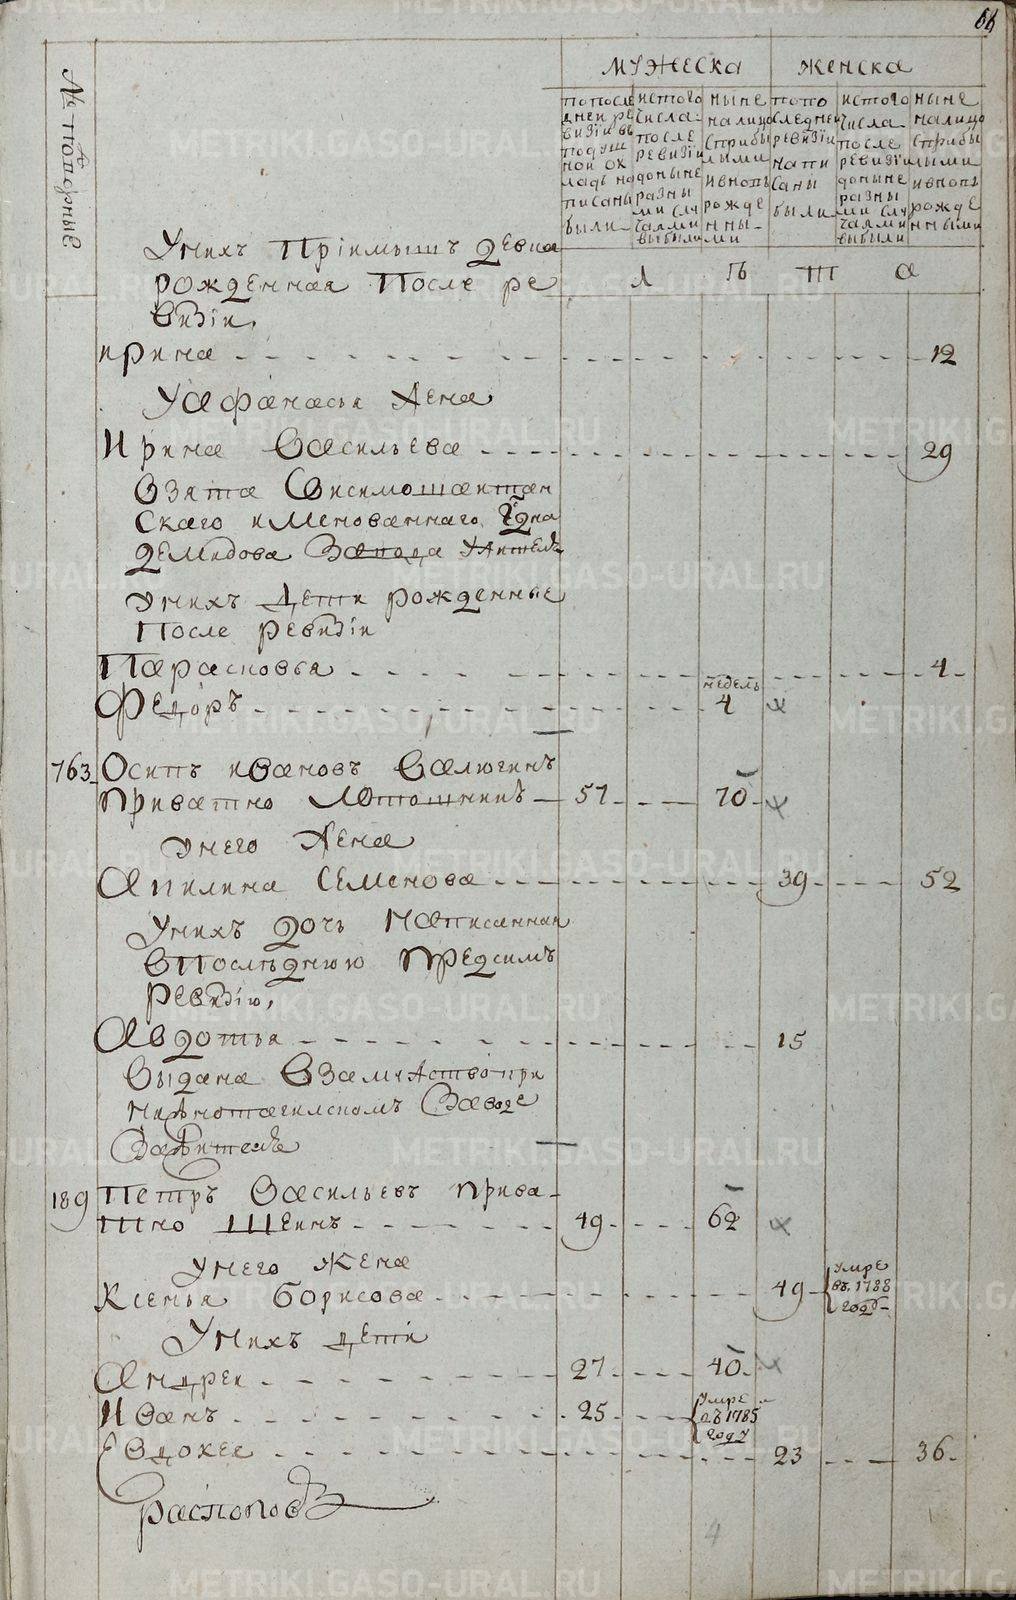 66
мужеска женска
№ подворные
по последней ревизiи въ подушной окладъ написаны были
ис того числа после ревизiи до ныне разными случаями выбыли
ныне налицо с прибылыми и вновь рожденными
по последней ревизiи написаны были
ис того числа после ревизiи до ныне разными случаями выбыли
ныне налицо с прибылыми и вновь рожденными
л ѣ т а
У нихъ Прiимышъ девка
рожденная После ре
визiи,
ирина 12
У афанасья жена
Ирина васильева 29
взята
скаго именованнаго
демидова завода жител
У нихъ Дети рожденные
После ревизiи
Парасковья 4
недель
Федоръ 4
763 Осипъ ивановъ валюгинъ
приватно 57 70
У него жена
Акилина семенова 39 52
У нихъ дочь Написанная
в Последнюю предсимъ
ревизiю,
Авдотья 15
выдана в замужство при
нижнотагилскомъ заводе
за жителя
189 Петръ васильевъ прива
тно Шеинъ 49 62
У него жена
умре
Ксенья Борисова 49 въ 1788
году
У нихъ дети
Андреи 27 40
умре
Иванъ 25 въ 1785
году
Евдокея 23 36
распопов
4
METRIKI.GASO-URAL.RU